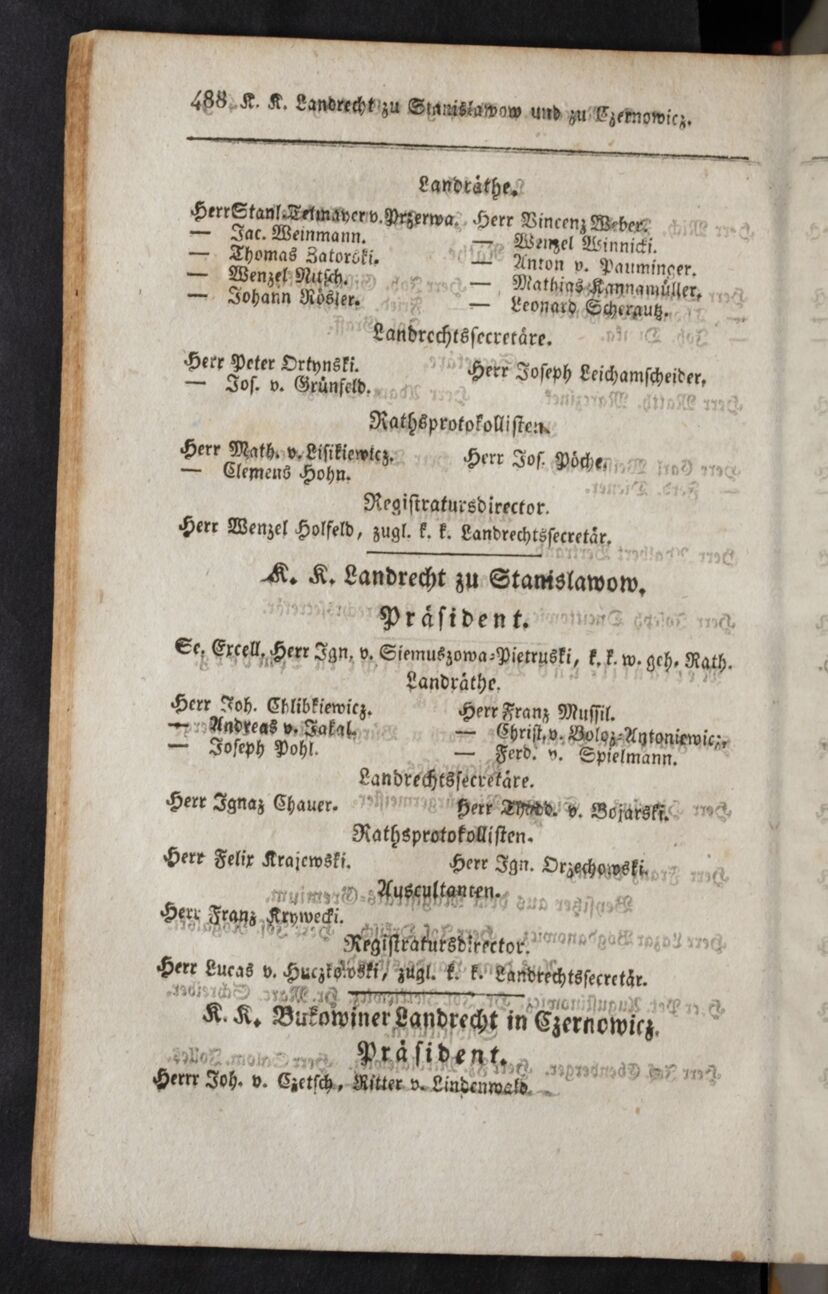 488 K. K. Landrecht zu Stanislawow und zu Czernowicz.
Landräthe.
Herr Stanl. Tetmayer v. Przerwa. Herr Vincenz Weber.
— Jac. Weinmann. — Wenzel Winnicki.
— Thomas Zatorski. — Anton v. Pauminger.
— Wenzel Nitsch. — Mathias Kannamüller.
— Johann Rösler. — Leonard Scherautz.
Landrechtssecretäre.
Herr Peter Ortynski. Herr Joseph Leichamscheider.
— Jos. v. Grünfeld.
Rathsprotokollisten.
Herr Math. v. Lisikiewicz. Herr Jos. Pöche.
— Clemens Hohn.
Registratursdirector.
Herr Wenzel Holfeld, zugl. k. k. Landrechtssecretär.
K. K. Landrecht zu Stanislawow.
Präsident.
Se. Excell. Herr Ign. v. Siemuszowa-Pietruski, k. k. w. geh. Rath.
Landräthe.
Herr Joh. Chlibkiewicz. Herr Franz Mussil.
— Andreas v. Jakal. — Christ. v. Boloz-Antoniewicz.
— Joseph Pohl. — Ferd. v. Spielmann.
Landrechtssecretäre.
Herr Ignaz Chauer. Herr v. Bojarski.
Rathsprotokollisten.
Herr Felix Krajewski. Herr Ign. Orzechowski.
Auscultanten.
Herr Franz Krywecki.
Registratursdirector.
Herr Lucas v. Huczkowski, zugl. k. k. Landrechtssecretär.
K. K. Bukowiner Landrecht in Czernowicz.
Präsident.
Herr Joh. v. Czetsch, Ritter v. Lindenwald.